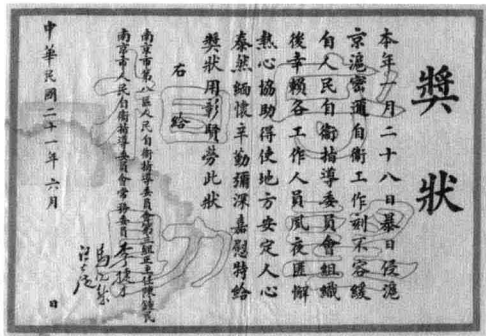 獎狀
本年一月二十八日暴日侵滬
京滬密邇自衛工作刻不容緩
自人民自衛指導委員會組織
後幸賴各工作人員夙夜匪懈
熱心協助得使地方安定人心
泰然緬懷辛勤彌深嘉慰特給
獎狀用彰賢勞此狀
右給
南京市第八區人民自衛指導委員會第三組正主任陳鍾民
南京市人民自衛指導委員會常務委員李捷才
中華民國二十一年六月 日